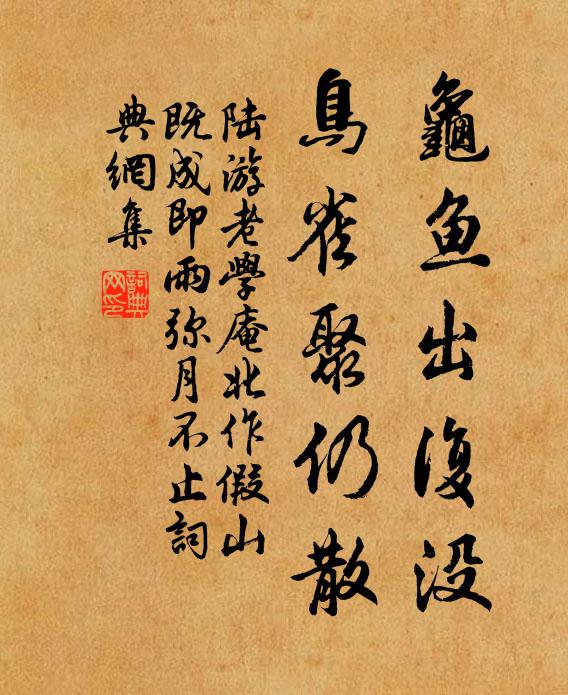 龜鱼出復没
鳥雀聚仍散
陆游老學庵北作假山
既成即雨弥月不止詞
典網集
詞典
网印